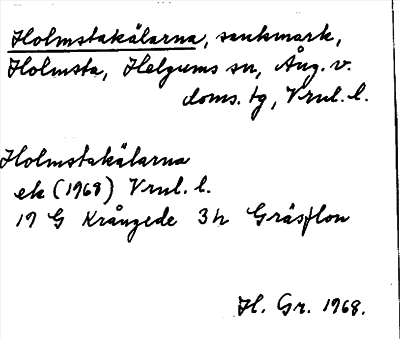 Holmstakälarna, sankmark,
Holmsta, Helgums sn, Ång. v.
doms. tg, Vrnl. l.
Holmstakälarna
ek (1968) Vrnl. l.
19 G Krångede 3h Gräsflon
H. Gr. 1968.